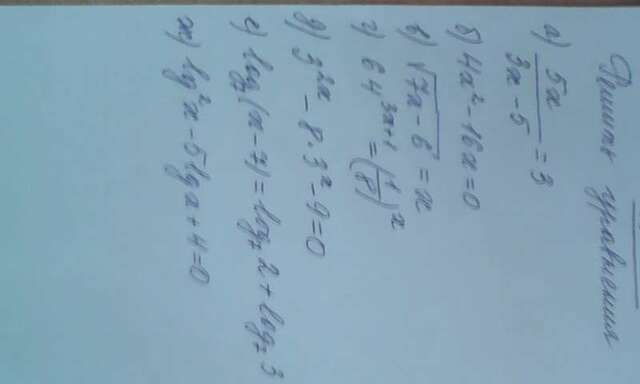 Решить уравнения
а) 5x/(3x - 5) = 3
б) 4x² - 16x = 0
в) √(7x - 6) = x
г) 64^(3x+1) = (1/8)^x
д) 3^(2x) - 8·3^x - 9 = 0
е) log₂(x - 7) = log₂ 2 + log₂ 3
ж) lg²x - 5lgx + 4 = 0